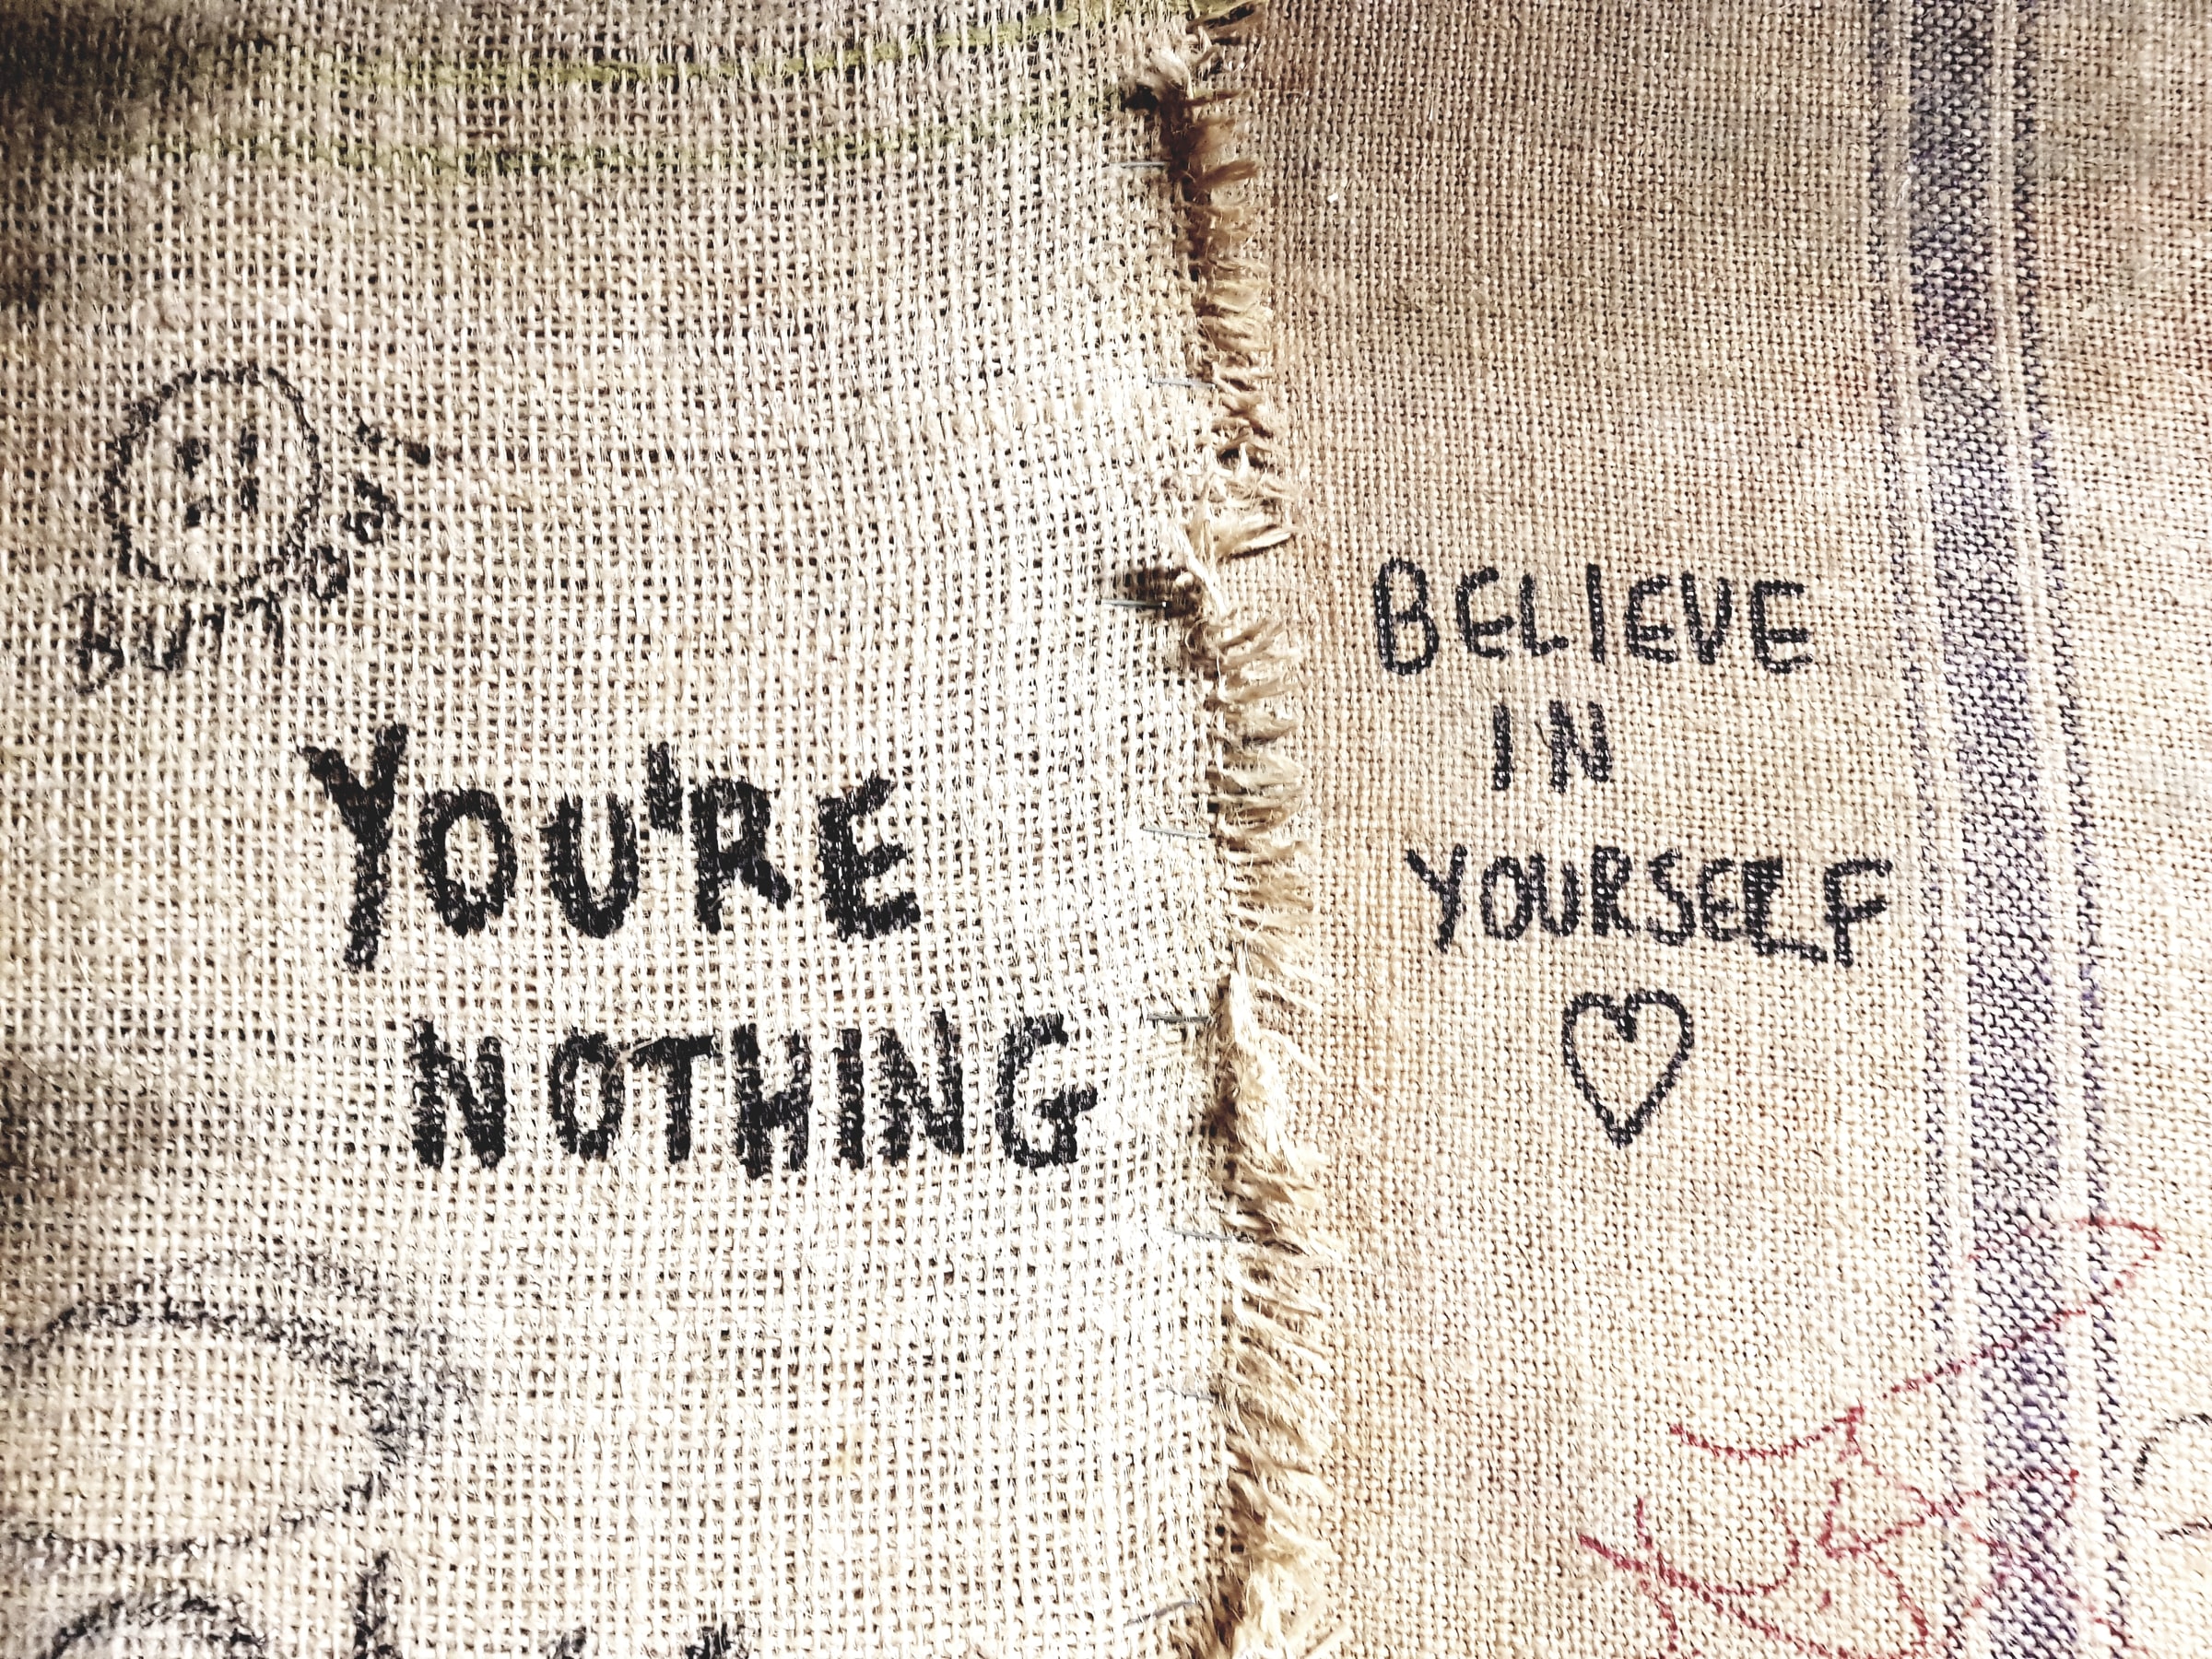 BUTTON
YOU'RE
NOTHING
BELIEVE
IN
YOURSELF